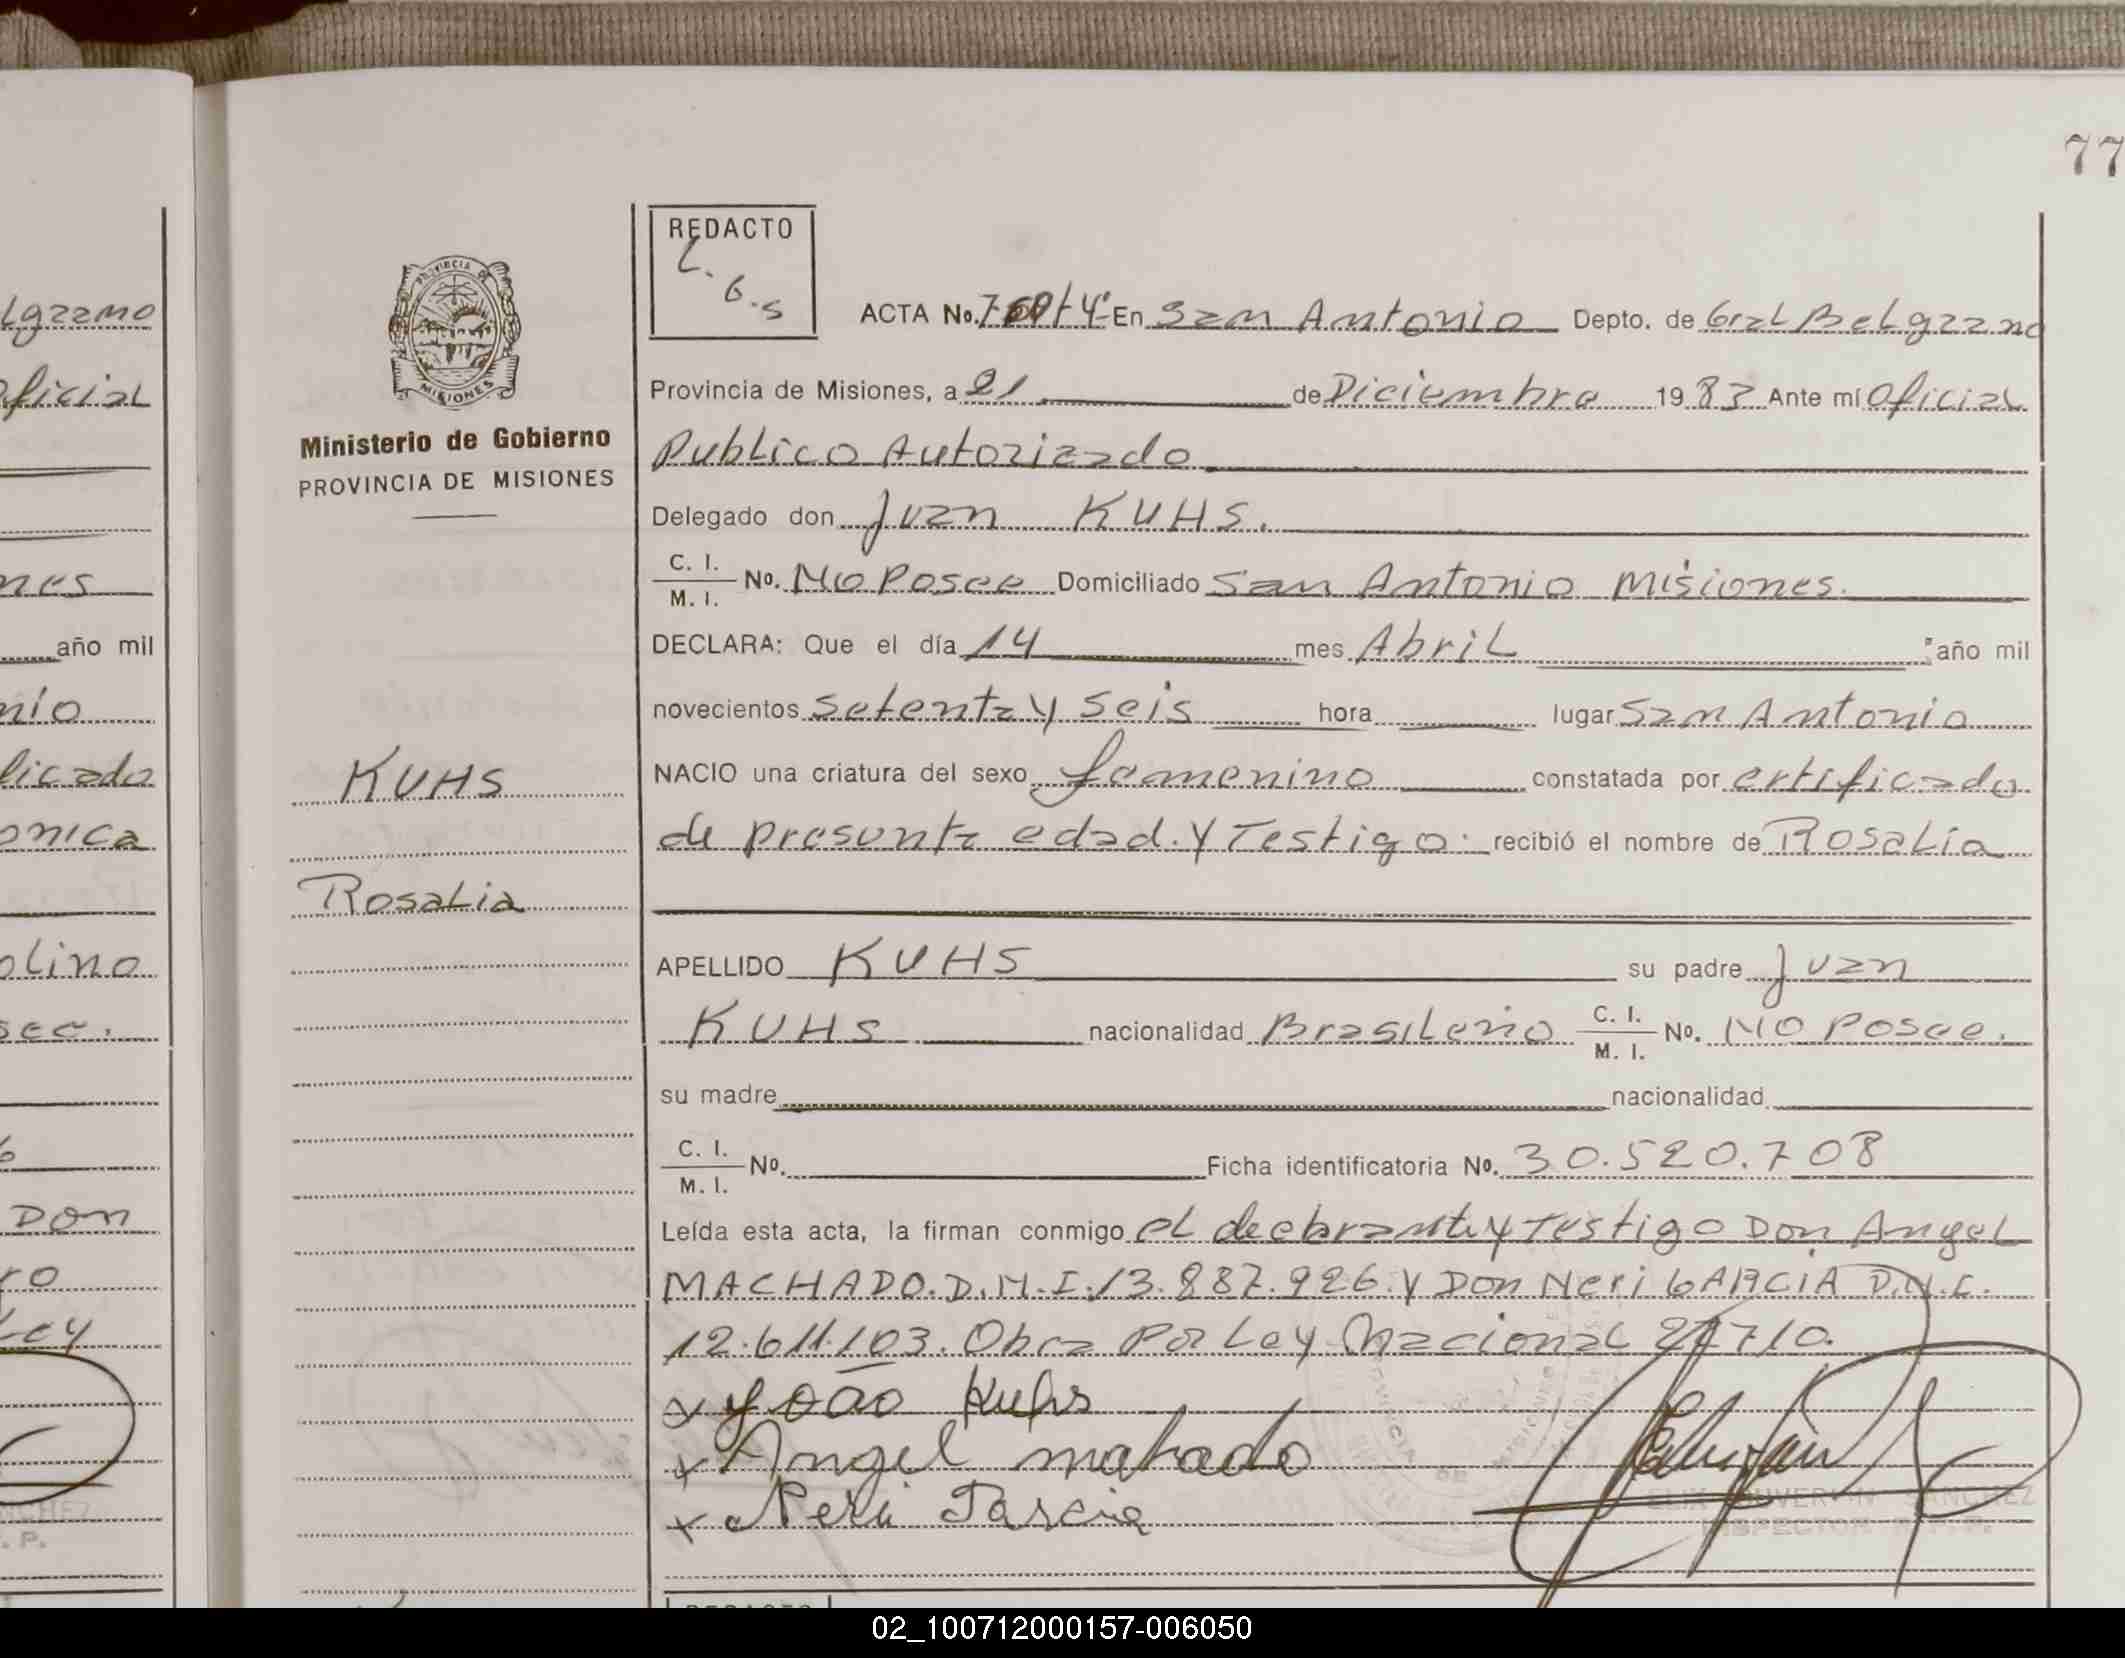 77
lgrano
ficial
nes
año mil
nio
licado
onica
olino
see.
DON
ro
Ley
PROVINCIA DE
MISIONES
Ministerio de Gobierno
PROVINCIA DE MISIONES
KUHS
Rosalia
REDACTO
L.
G.S
ACTA No. En San Antonio Depto. de Gral Belgrano
Provincia de Misiones, a 21 de Diciembre 1983 Ante mí Oficial
Publico Autorizado
Delegado don Juan KUHS.
C. I.
M. I. No. No Posee Domiciliado San Antonio Misiones.
DECLARA: Que el día 14 mes Abril año mil
novecientos setenta y seis hora lugar San Antonio
NACIO una criatura del sexo femenino constatada por ertificado
de presunta edad. Y Testigo. recibió el nombre de Rosalía
APELLIDO KUHS su padre Juan
KUHS nacionalidad Brasileño C. I.
M. I. No. No Posee.
su madre nacionalidad
C. I.
M. I. No. Ficha identificatoria No. 30.520.708
Leída esta acta, la firman conmigo el declarante y Testigo Don Angel
MACHADO. D.N.I. 13.887.926. Y Don Neri GARCIA D.N.I.
12.611.103. Obra Por Ley Nacional
x João Kuhs
x Angel mahado
x Neri Garcia
SANCHEZ
INSPECTOR
02_100712000157-006050